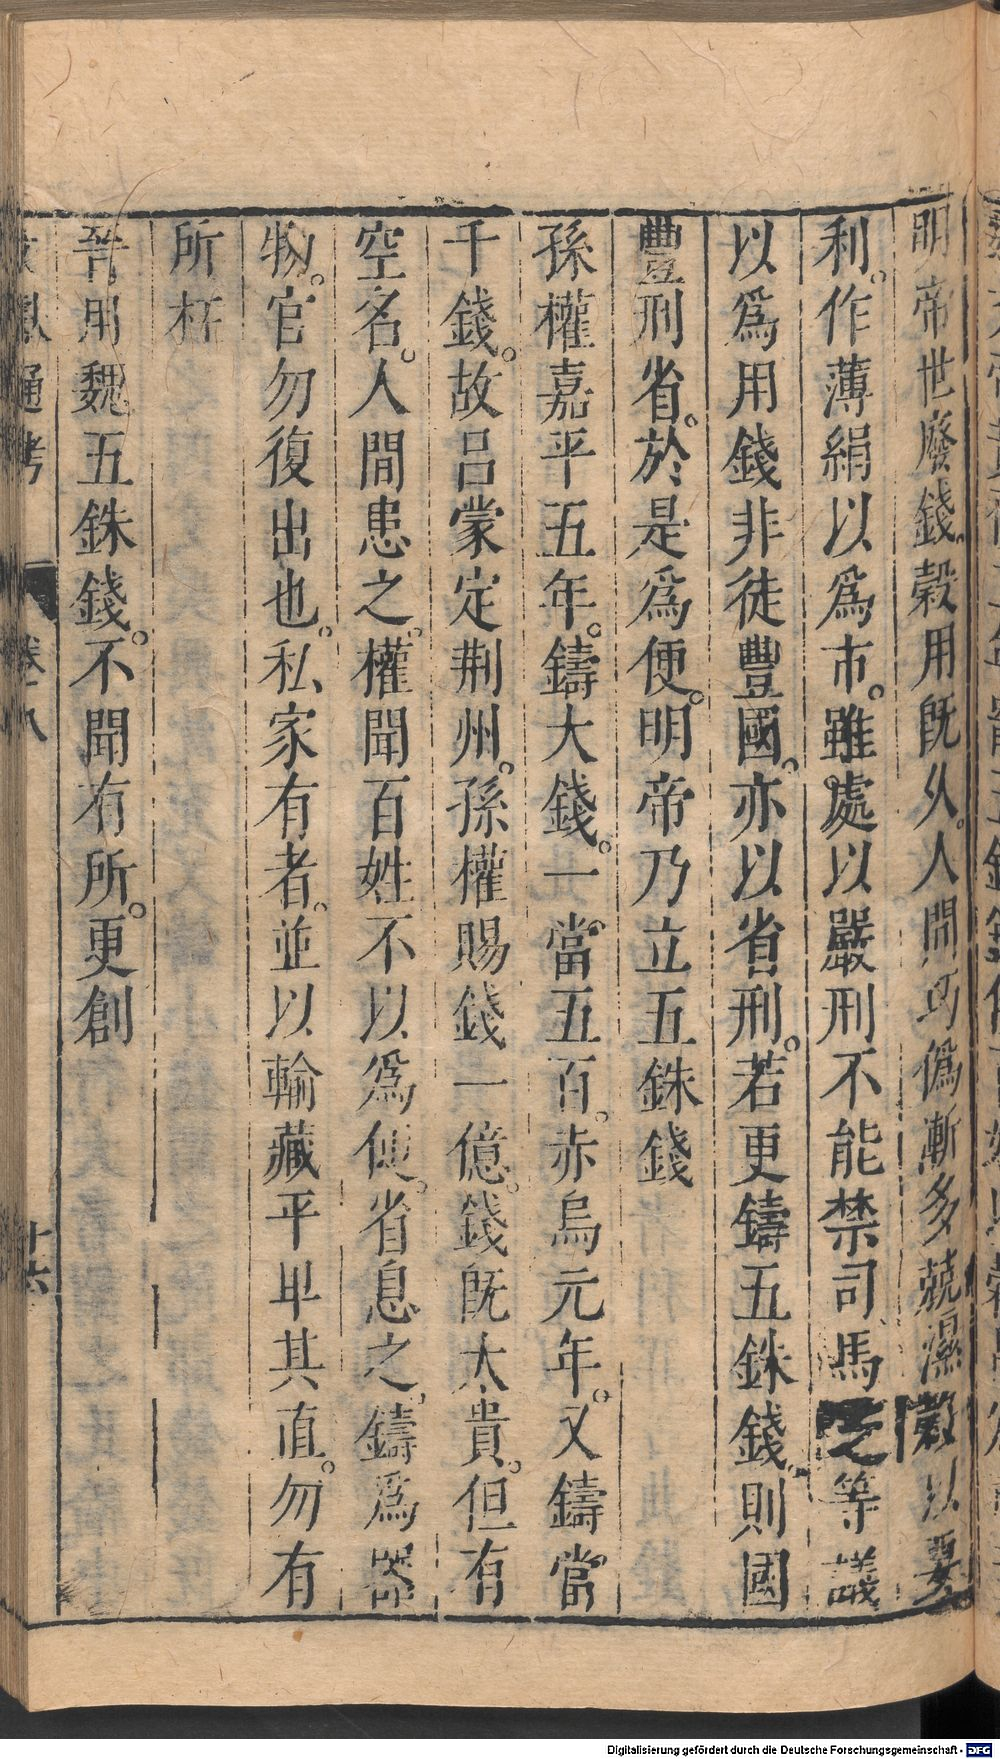 明帝世廢錢穀用旣久人間巧僞漸多競濕穀以要
利作薄絹以爲市雖處以嚴刑不能禁司馬芝等議
以爲用錢非徒豐國亦以省刑若更鑄五銖錢則國
豐刑省於是爲便明帝乃立五銖錢
孫權嘉平五年鑄大錢一當五百赤烏元年又鑄當
千錢故呂蒙定荆州孫權賜錢一億錢旣太貴但有
空名人間患之權聞百姓不以爲便省息之鑄爲器
物官勿復出也私家有者並以輸藏平卑其直勿有
所枉
晉用魏五銖錢不聞有所更創
通考 卷八 十六
Digitalisierung gefördert durch die Deutsche Forschungsgemeinschaft - DFG